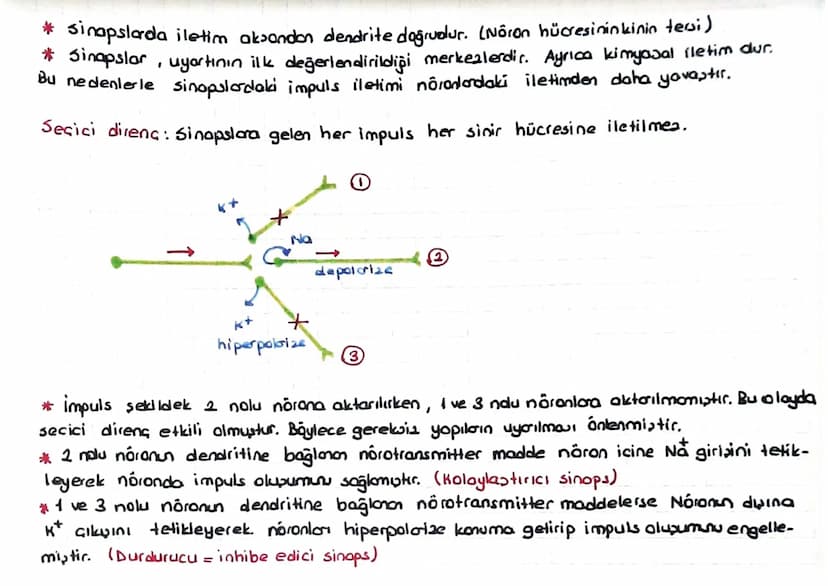 * Sinapslarda iletim aksondan dendrite doğrudur. (Nöron hücresininkinin tersi)
* Sinapslar, uyartının ilk değerlendirildiği merkezlerdir. Ayrıca kimyasal iletim dur.
Bu nedenlerle sinapslardaki impuls iletimi nöronlardaki iletimden daha yavaştır.
Seçici direnç: Sinapslara gelen her impuls her sinir hücresine iletilmez.
K+
①
Na
depolarize
②
K+
hiperpolarize
③
* İmpuls şekildek 2 nolu nörona aktarılırken, 1 ve 3 nolu nöronlara aktarılmamıştır. Bu olayda
secici direnç etkili olmuştur. Böylece gereksiz yapıların uyarılması önlenmiştir.
* 2 nolu nöronun dendritine bağlanan nörotransmitter madde nöron icine Na+ girişini tetik-
leyerek nöronda impuls oluşumunu sağlamıştır. (Kolaylaştırıcı sinaps)
* 1 ve 3 nolu nöronun dendritine bağlanan nörotransmitter maddelerse Nöronun dışına
K+ çıkışını tetikleyerek nöronları hiperpolarize konuma getirip impuls oluşumunu engelle-
miştir. (Durdurucu = inhibe edici sinaps)